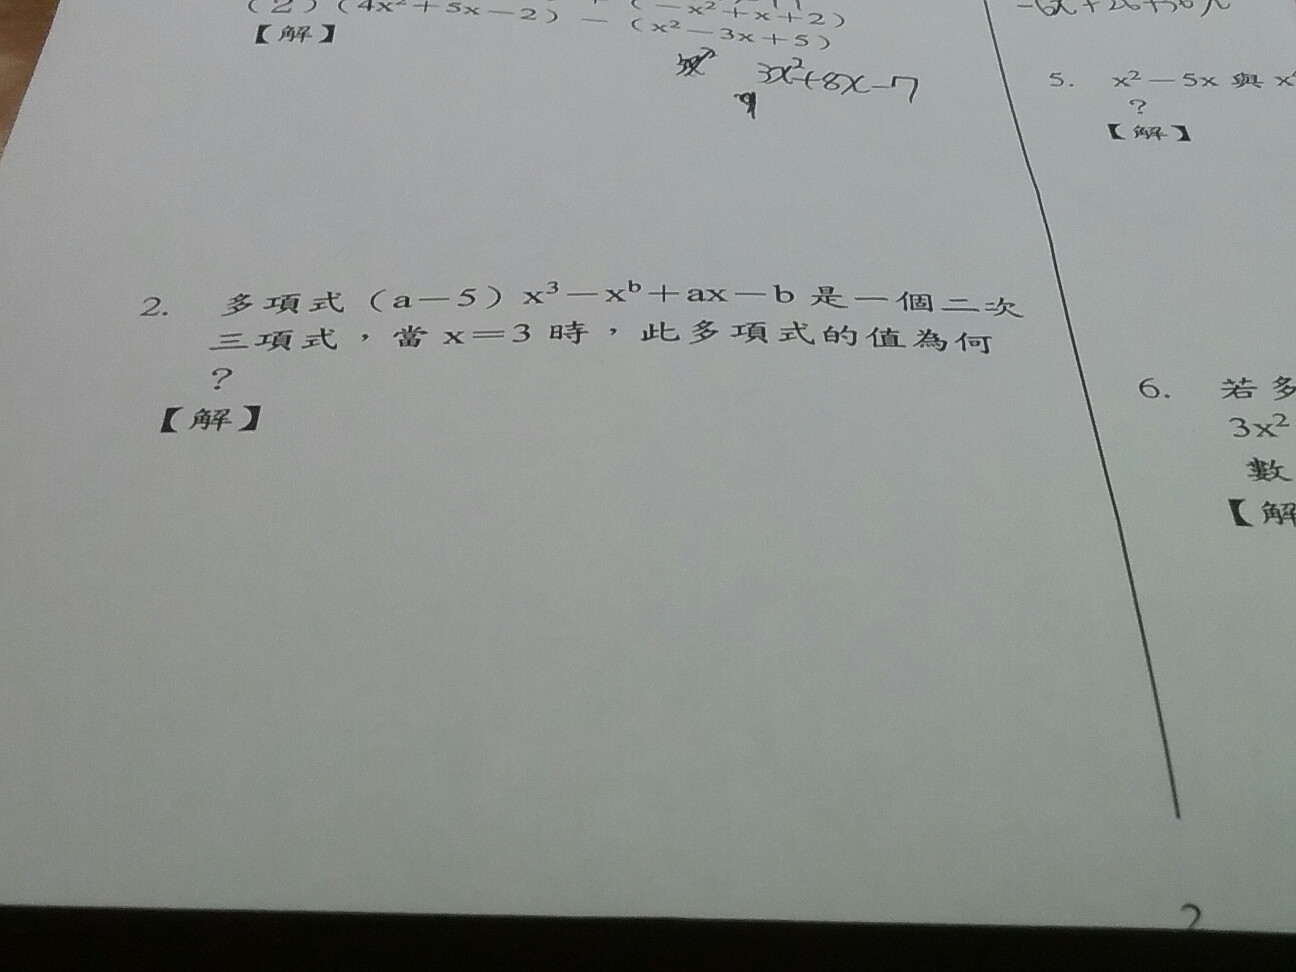 (2)(4x²+5x−2)−(x²−3x+5)
(−x²+x+2)
【解】
3x²+8x−7
2. 多項式(a−5)x³−xᵇ+ax−b是一個二次
三項式,當x=3時,此多項式的值為何
?
【解】
5. x²−5x與x
?
【解】
6. 若多
3x²
數
【解
2